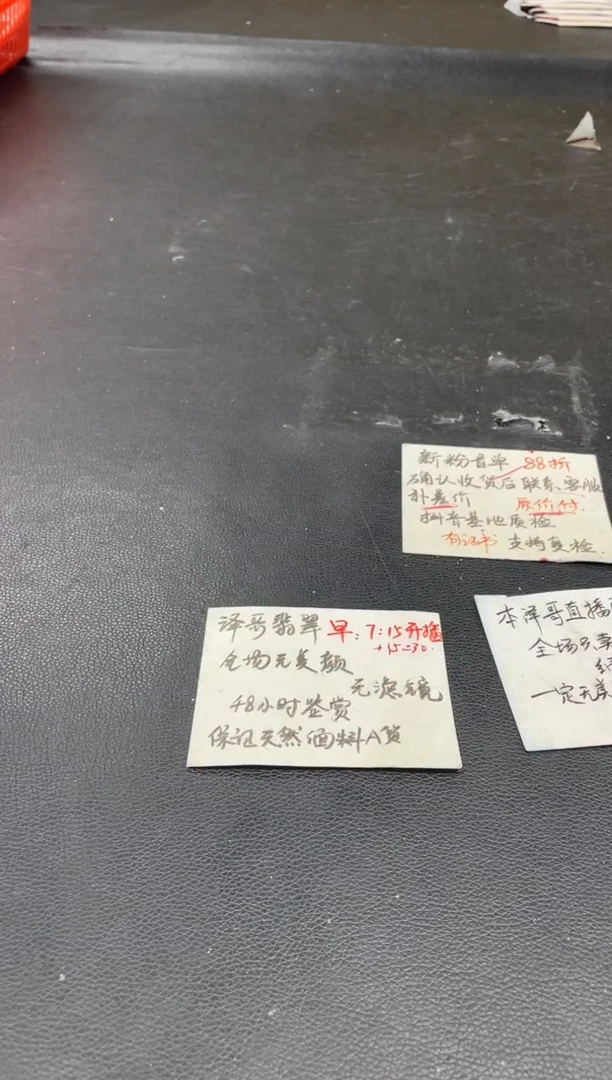 新粉首单 88折
确认收货后联系客服
补差价 原价付
抖音基地质检
有证书 支持复检
泽哥翡翠 早:7:15开播
+15-30
全场无美颜
无滤镜
48小时鉴赏
保证天然A货
本泽哥直播
全场只卖
一定无美